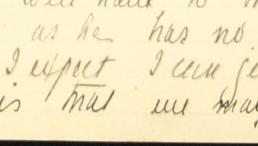 well have to
as he has no
I expect I can ge
is that we may